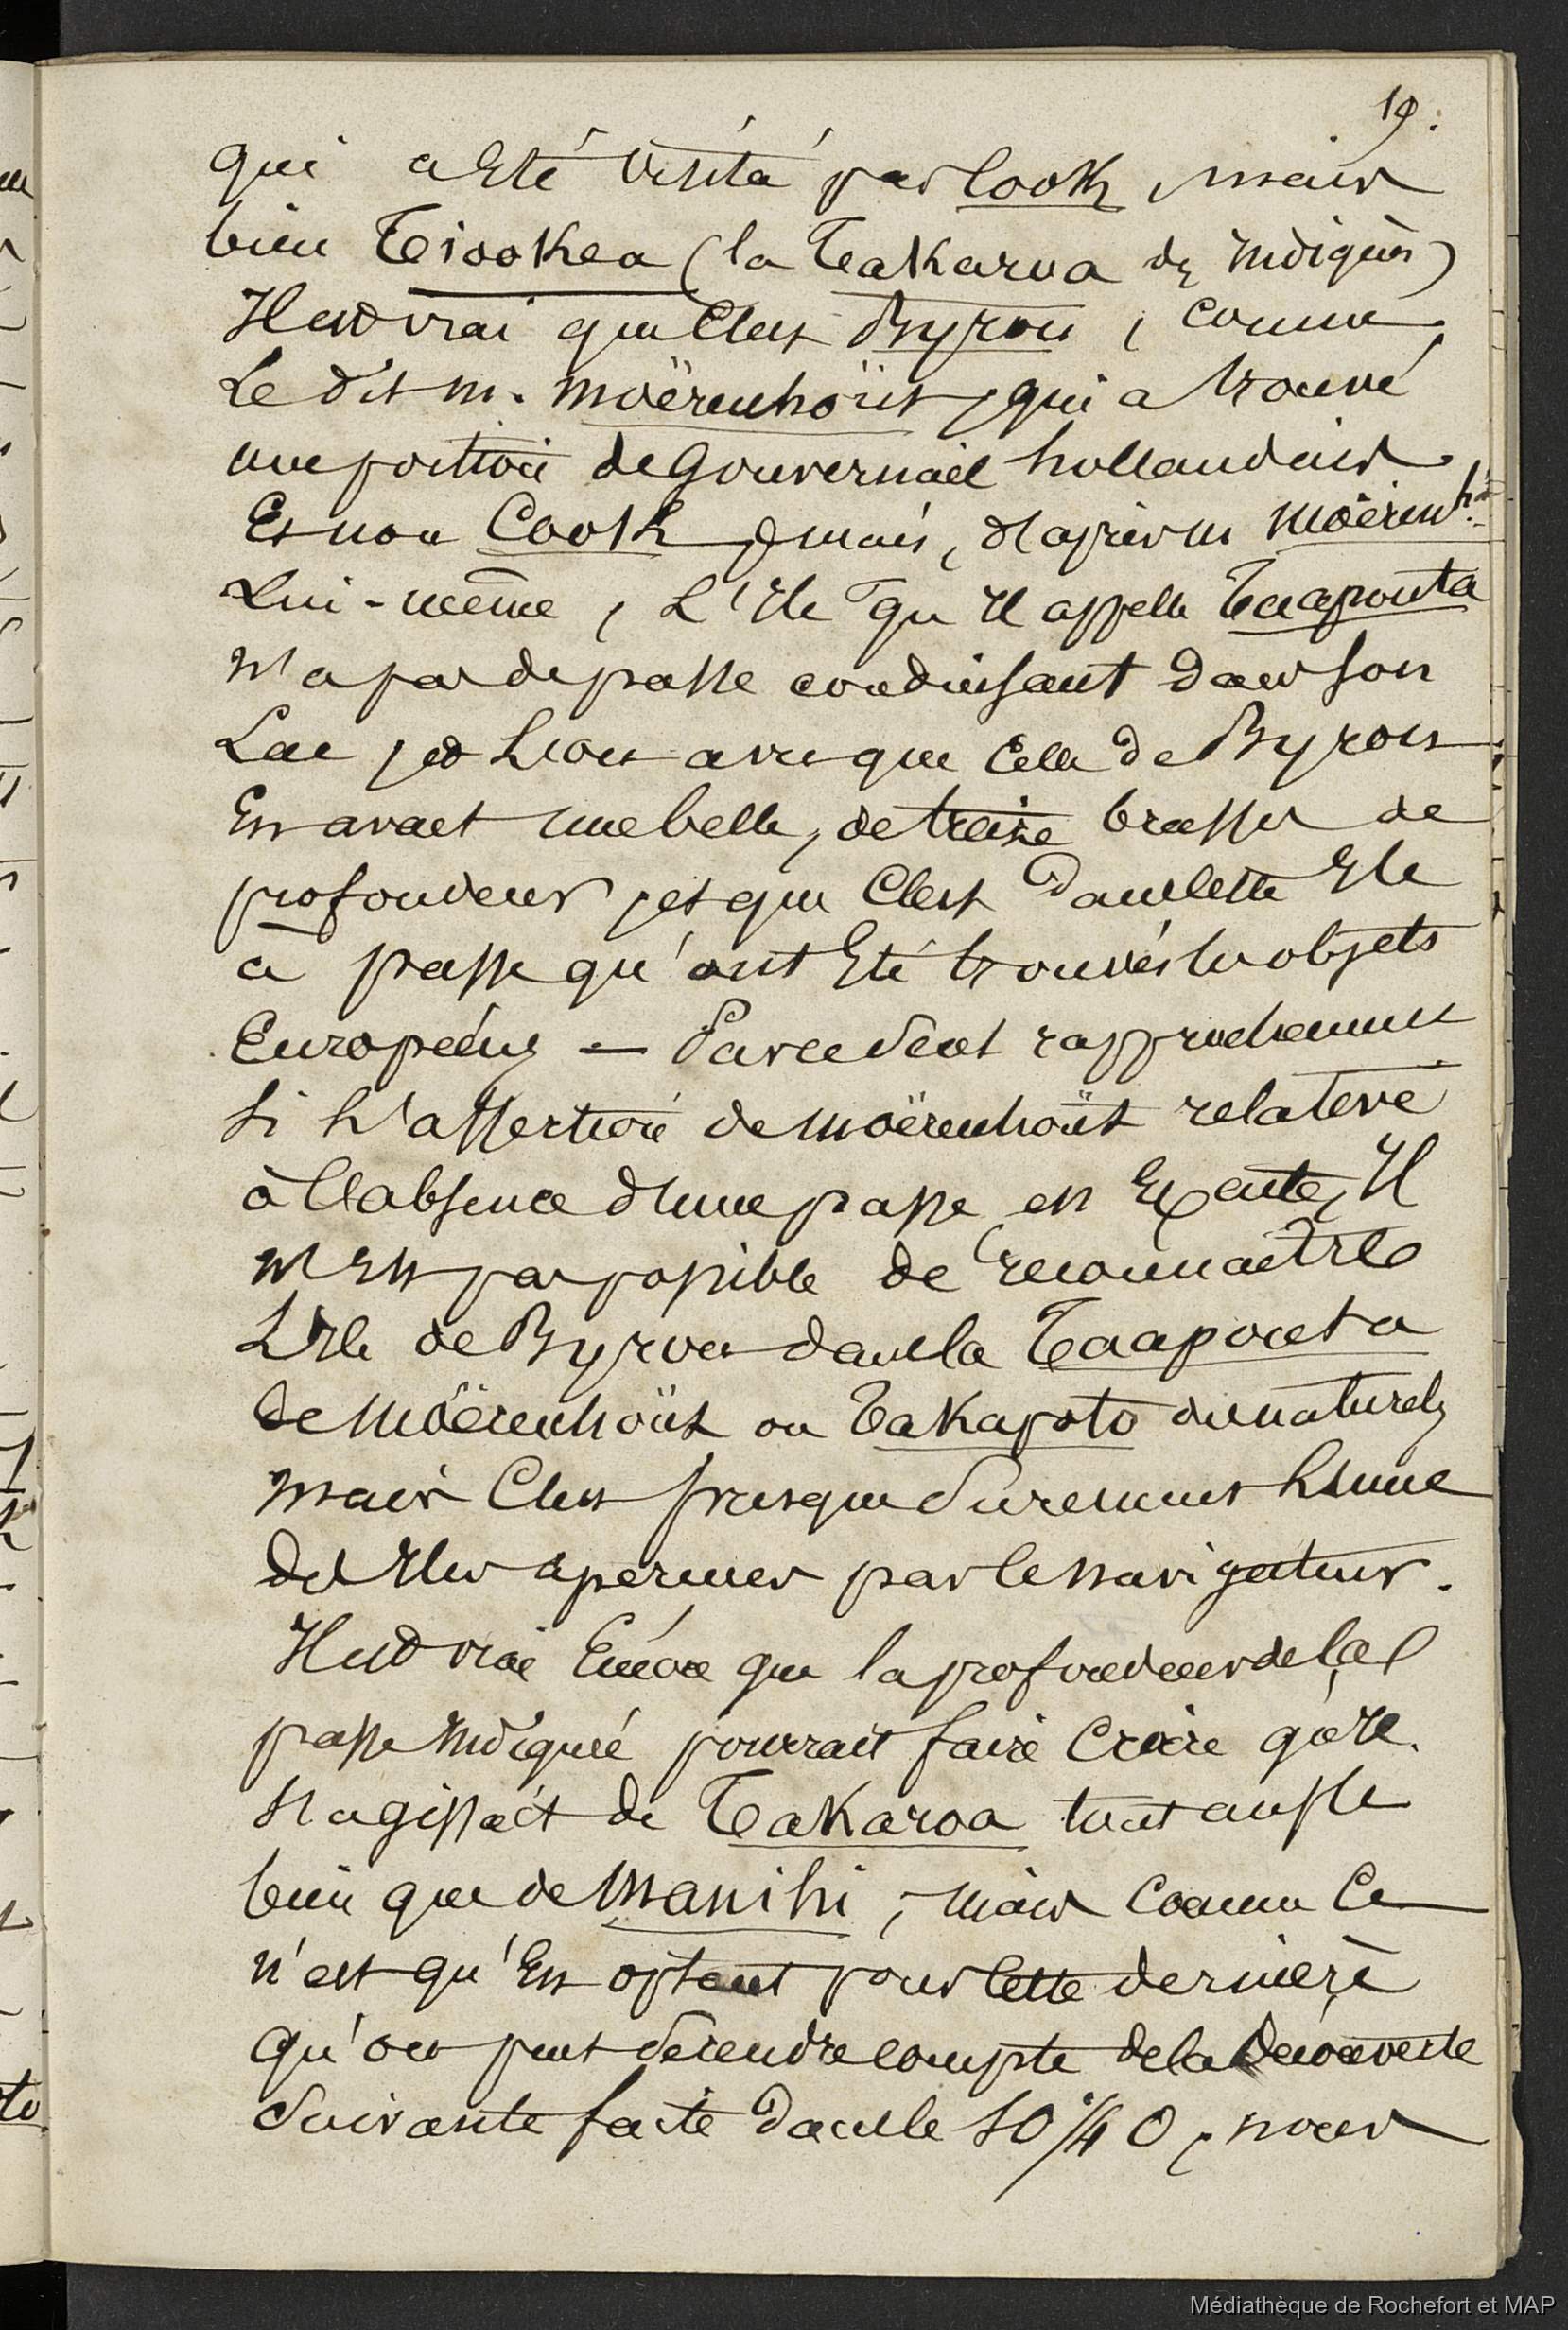 19.
qui a été visité par Cook, mais
bien Tiookea (la Takaroa des indigènes)
Il est vrai que c'est Byron, comme
le dit M. Moërenhoüt, qui a trouvé
une portion de gouvernail hollandais
et non Cook; mais, d'après M Moërenht
lui-même, l'île qu'il appelle Taapouta
n'a pas de passe conduisant dans son
lac, et l'on a vu que celle de Byron
en avait une belle, de treize brasses de
profondeur, et que c'est dans cette île
à passe qu'ont été trouvés les objets
Européens — Par ce seul rapprochement
si l'assertion de Moërenhoüt relative
à l'absence d'une passe est exacte, il
n'est pas possible de reconnaître
l'île de Byron dans la Taapouta
de Moërenhoüt ou Takapoto des naturels
mais c'est presque surement l'une
des îles aperçues par le navigateur.
Il est vrai encore que la profondeur de la
passe indiquée pourrait faire croire qu'il
s'agissait de Takaroa tout aussi
bien que de Manihi; mais comme ce
n'est qu'en optant pour cette dernière
qu'on peut se rendre compte de la découverte
suivante faite dans le SO 1/4 O, nous
Médiathèque de Rochefort et MAP